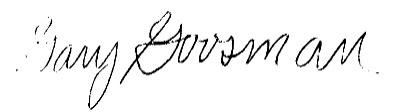 Gary Goosman